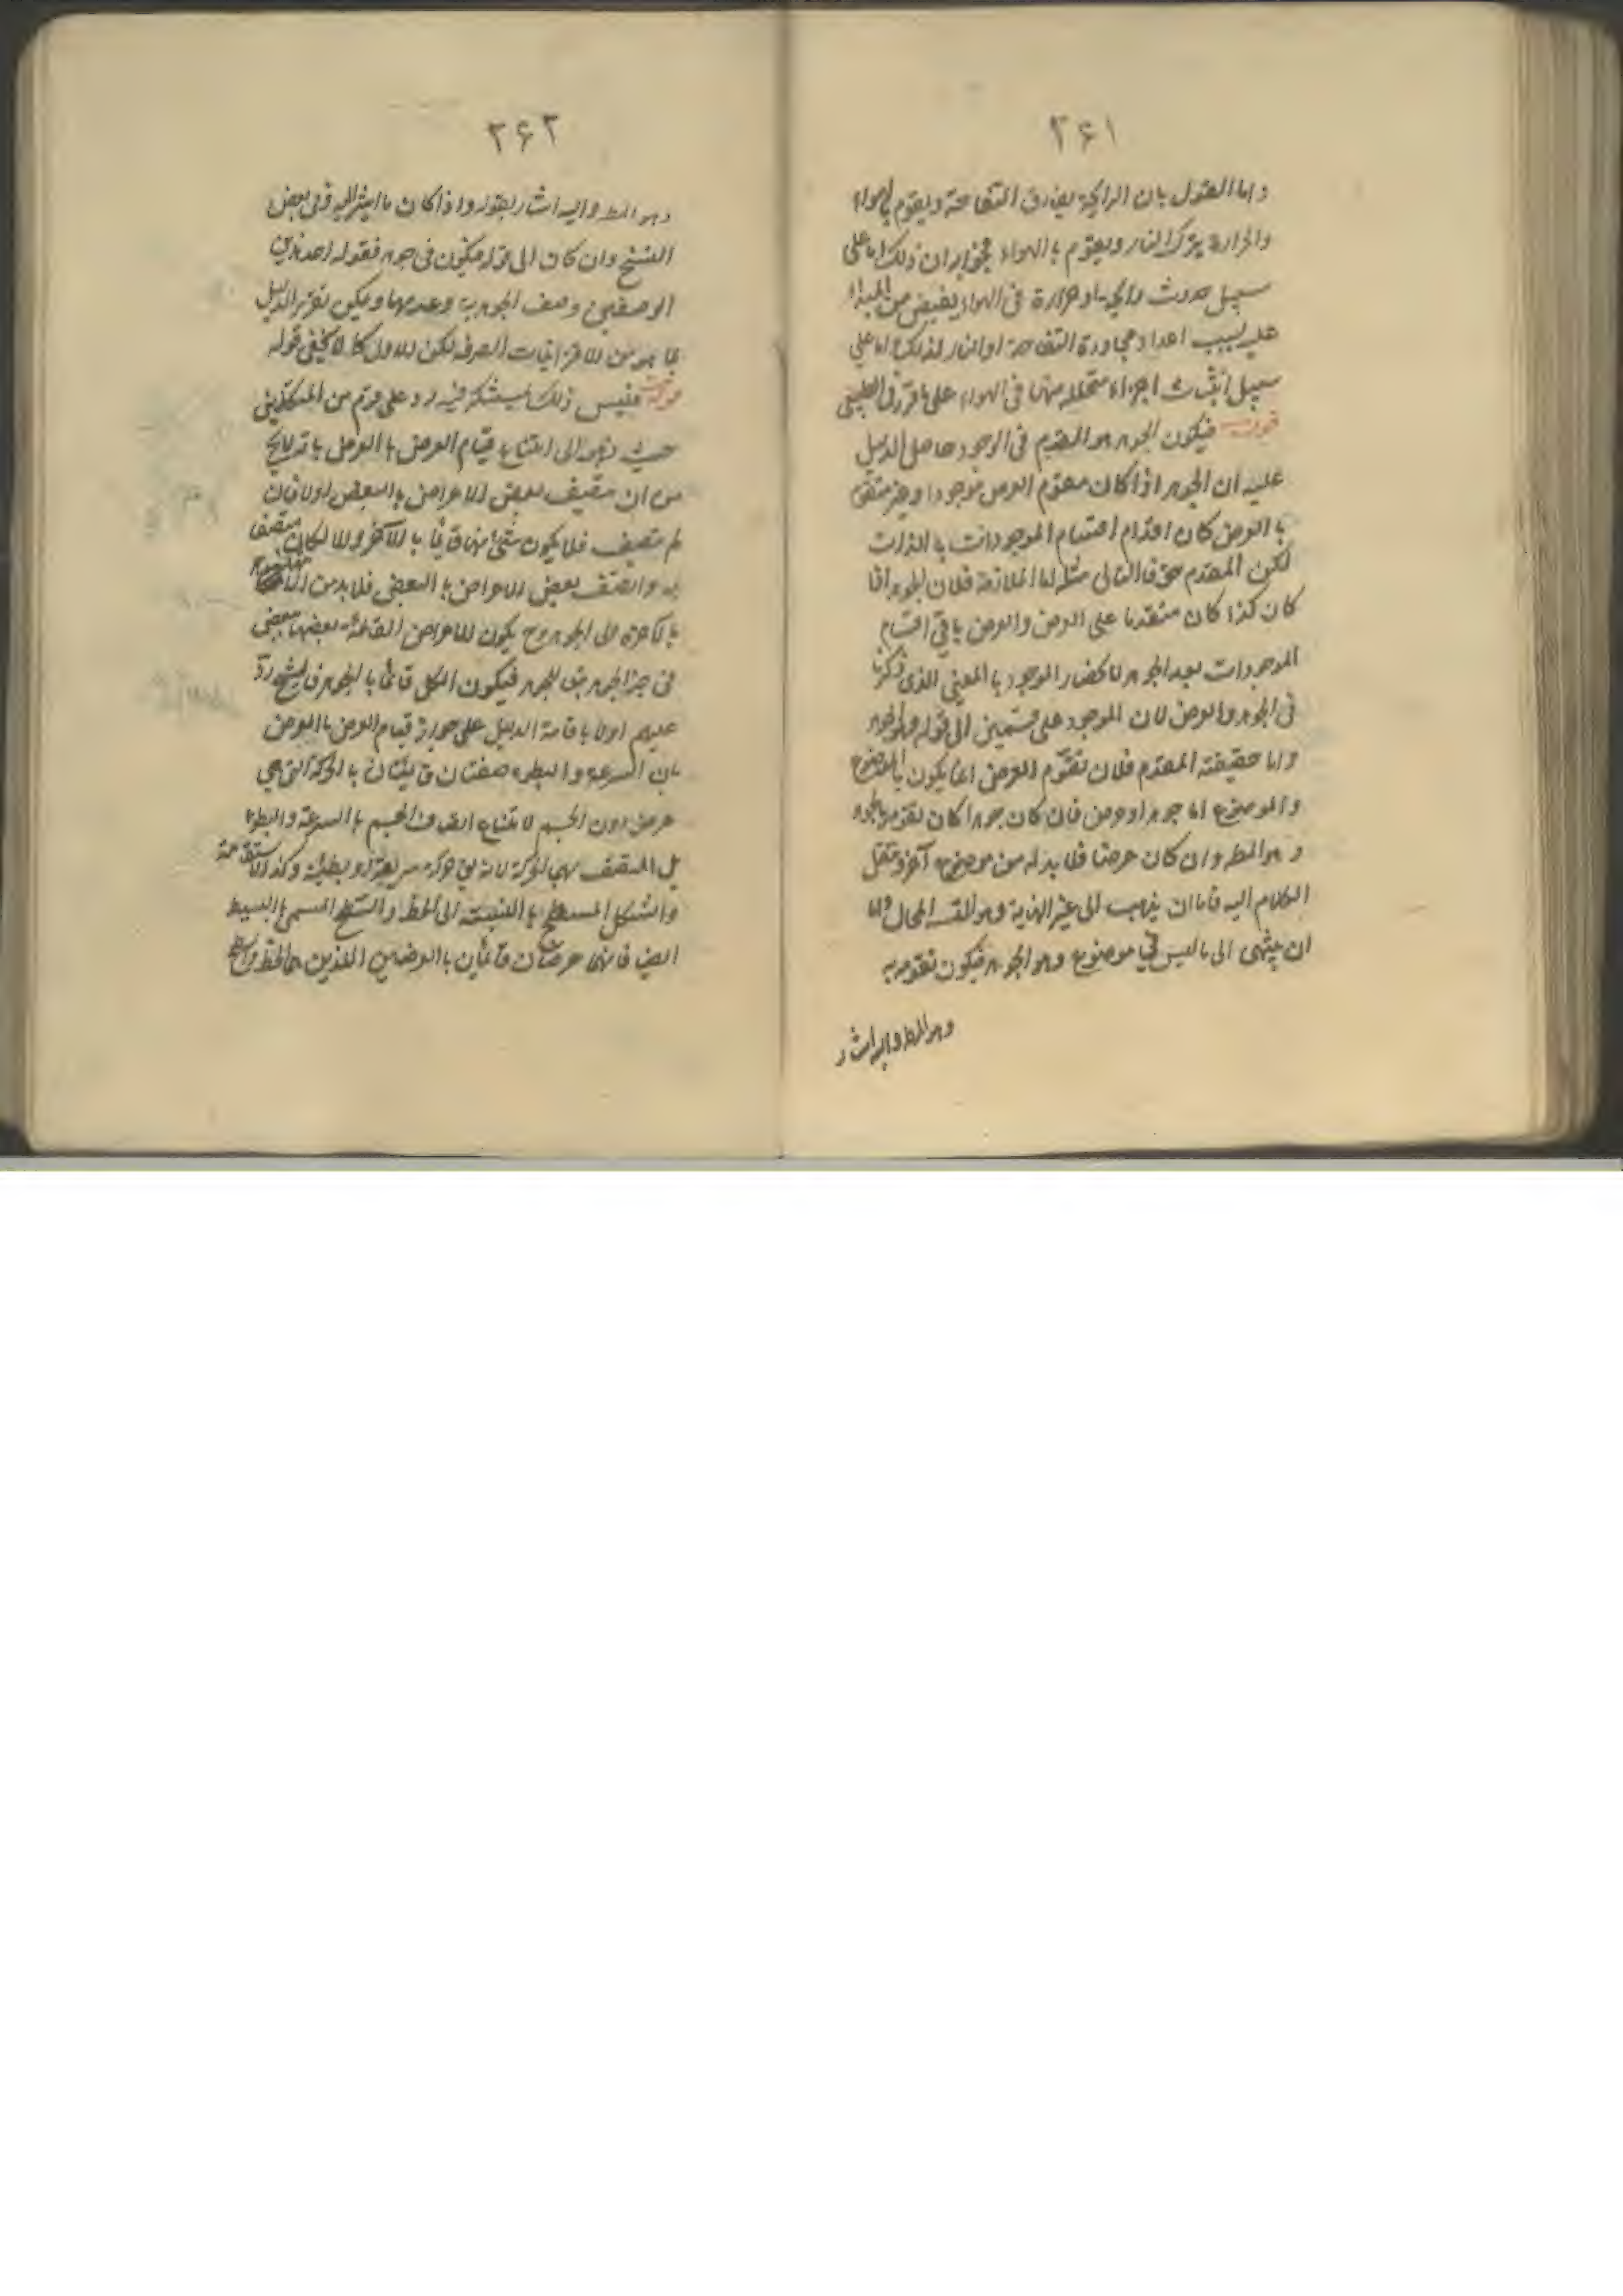 ۲۶۱
واما القول بان الرائحة يفارق التفاحة ويقوم بالهواء
والحرارة يترك النار ويقوم بالهواء فجوابه ان ذلك اما على
سبيل حدوث رائحة او حرارة فى الهواء يفيض من المبدأ
عليه بسبب اعداد مجاورة التفاحة او النار لذلك اما على
سبيل انبثاث اجزاء متحللة منها فى الهواء على ما قرر فى الطبيعى
قوله فيكون الجوهر هو المقدم فى الوجود حاصل الدليل
عليه ان الجوهر اذا كان مقوم العرض موجودا وغير متقوم
بالعرض كان اقدم اقسام الموجودات بالذات
لكن المقدم حق فالتالى مثله اما الملازمة فلان الجوهر اذا
كان كذا كان متقدما على العرض والعرض باقى اقسام
الموجودات بعد الجوهر لانحصار الموجود بالمعنى الذى ذكرنا
فى الجوهر والعرض لان الموجود على قسمين الى قوله فهو الجوهر
واما حقيقة المقدم فلان تقوم العرض انما يكون بالموضوع
والموضوع اما جوهر او عرض فان كان جوهرا كان تقومه بالجوهر
وهو المط وان كان عرضا فلا بد له من موضوع آخر وننقل
الكلام اليه فاما ان يذهب الى غير النهاية وهو المحال واما
ان ينتهى الى ما ليس فى موضوع وهو الجوهر فيكون تقومه به
وهو المط واليه اشار
۲۶۲
وهو المط واليه اشار بقوله واذا كان ما اشير اليه وفى بعض
النسخ وان كان الى قوله فيكون فى جوهر فقوله احد هذين
الوصفين وصف الجوهرية وعدمها ويمكن تقرير الدليل
بما هو من الاقترانيات الصرفة لكن الاول كما لا يخفى قوله
قوله فليس ذلك بمستنكر فيه رد على قوم من المتكلمين
حيث ذهبوا الى امتناع قيام العرض بالعرض
من ان يتصف بعض الاعراض بالبعض اولا فان
لم يتصف فلا يكون شئ منها قائما بالآخر والا لكان متصفا
به وان اتصف بعض الاعراض بالبعض فلا بد من
بالآخرة الى الجوهر وح يكون الاعراض القائمة بعضها ببعض
فى حيز الجوهر تبعا للجوهر فيكون الكل قائما بالجوهر فالشيخ رد
عليهم اولا باقامة الدليل على جواز قيام العرض بالعرض
بان السرعة والبطوء صفتان قائمتان بالحركة التى هى
عرض دون الجسم لامتناع اتصاف الجسم بالسرعة والبطوء
بل المتصف بهما الحركة لانه يق حركة سريعة او بطيئة وكذا الاستقامة
والشكل المسطح بالنسبة الى الخط والسطح المسمى بالبسيط
ايضا فانهما عرضان قائمان بالعرضين اللذين هما الخط والسطح